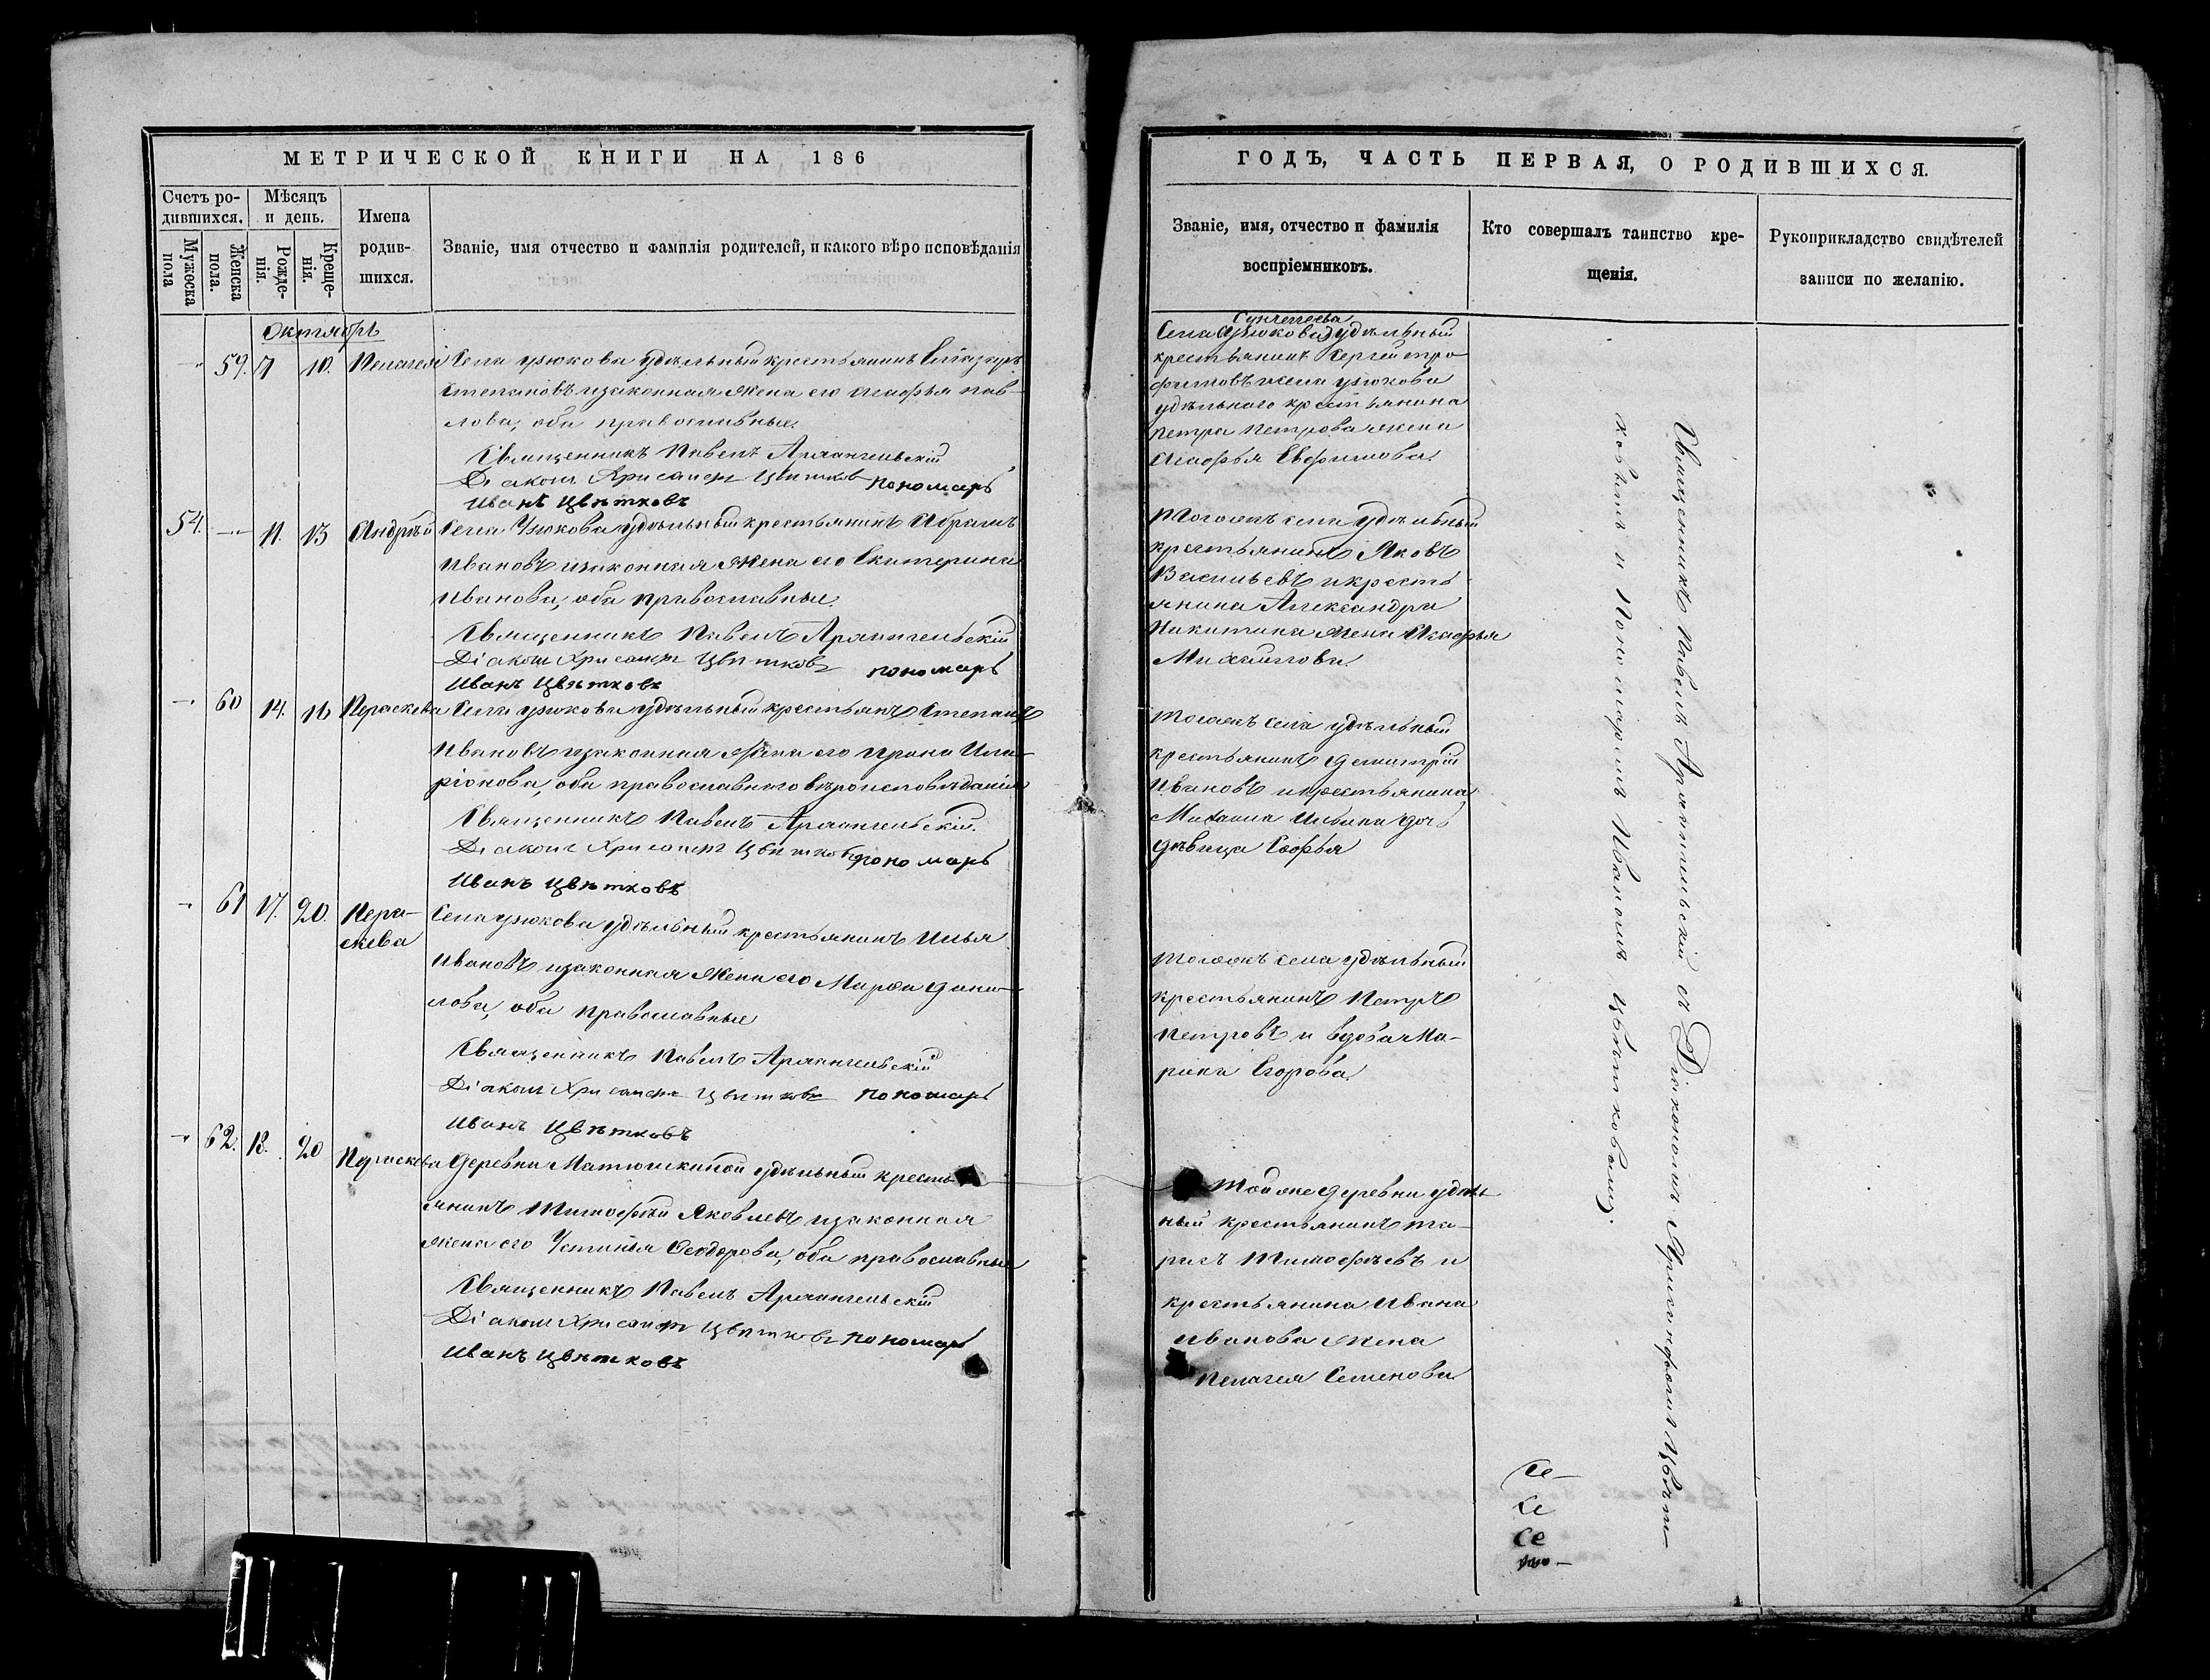 МЕТРИЧЕСКОЙ КНИГИ НА 186
Счетъ ро-
дившихся.
Мѣсяцъ
и день.
Имена
родив-
шихся.
Званіе, имя отчество и фамилія родителей, и какого вѣроисповѣданія
Мужеска
пола
Женска
пола.
Рожде-
нія.
Креще-
нія.
Октябрь
59. 7 10. Пелагея Села Узюкова удѣльный крестьянинъ Елиазаръ
Степановъ изаконная жена его Агафья Пав-
лова, оба православные.
Священникъ Павелъ Архангельскій
Діаконъ Хрисанфъ Цвѣтковъ пономарь
Иванъ Цвѣтковъ
54. 11. 13 Андрѣй Села Узюкова удѣльный крестьянинъ Абрамъ
Ивановъ изаконная жена его Екатерина
Иванова, оба православные.
Священникъ Павелъ Архангельскій
Діаконъ Хрисанфъ Цвѣтковъ пономарь
Иванъ Цвѣтковъ
60 14. 16 Параскева Села Узюкова удѣльный крестьянъ Степанъ
Ивановъ изаконная жена его Ирина Ила-
ріонова, оба православнаго вѣроисповѣданія
Священникъ Павелъ Архангельскій.
Діаконъ Хрисанфъ Цвѣтковъ пономарь
Иванъ Цвѣтковъ
61 17. 20. Пара-
скева
Села Узюкова удѣльный крестьянинъ Илья
Ивановъ изаконная жена его Марѳа Дани-
лова, оба православные
Священникъ Павелъ Архангельскій
Діаконъ Хрисанфъ Цвѣтковъ пономарь
Иванъ Цвѣтковъ
62. 18. 20 Параскева Деревни Матюшкиной удѣльный кресть
янинъ Тимофѣй Яковлевъ изаконная
жена его Устинья Ѳеодорова, оба православные
Священникъ Павелъ Архангельскій
Діаконъ Хрисанфъ Цвѣтковъ пономарь
Иванъ Цвѣтковъ
ГОДЪ, ЧАСТЬ ПЕРВАЯ, О РОДИВШИХСЯ.
Званіе, имя, отчество и фамилія
воспріемниковъ.
Кто совершалъ таинство кре-
щенія.
Рукоприкладство свидѣтелей
записи по желанію.
Села (Узюкова) удѣльный
крестьянинъ Сергей Тро
фимовъ и села Узюкова
удѣльнаго крестьянина
Петра Петрова жена
Агафья Евфимова.
Тогожъ села удѣльный
крестьянинъ Яковъ
Васильевъ и кресть
янина Александра
Никитина жена Агафья
Михайлова.
Тогожъ села удѣльный
крестьянинъ Димитрій
Ивановъ и крестьянина
Михаила Ильина дочь
дѣвица Софья
Тогожъ села удѣльный
крестьянинъ Петръ
Петровъ и вдова Ма-
рина Егорова.
Той же деревни удѣль
ный крестьянинъ Та-
расъ Тимофѣевъ и
крестьянина Ивана
Иванова жена
Пелагея Семенова
Священникъ Павелъ Архангельскій съ Діакономъ Хрисанфомъ Цвѣт-
ковымъ и Пономаремъ Иваномъ Цвѣтковымъ.
Се-
Се